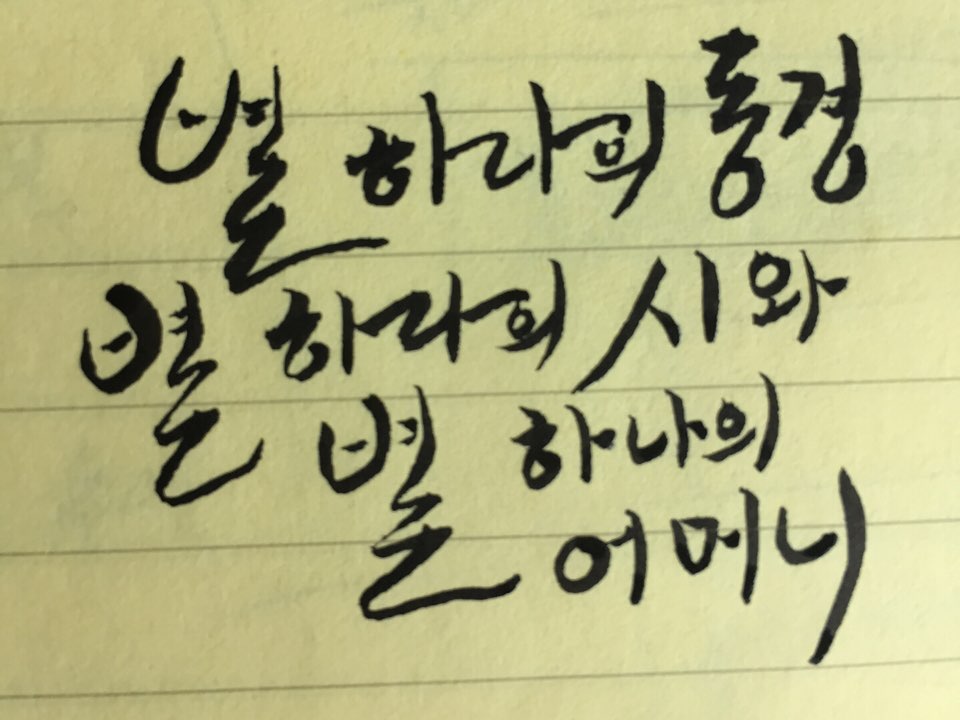 별 하나의 동경
별 하나의 시와
별 하나의
어머니